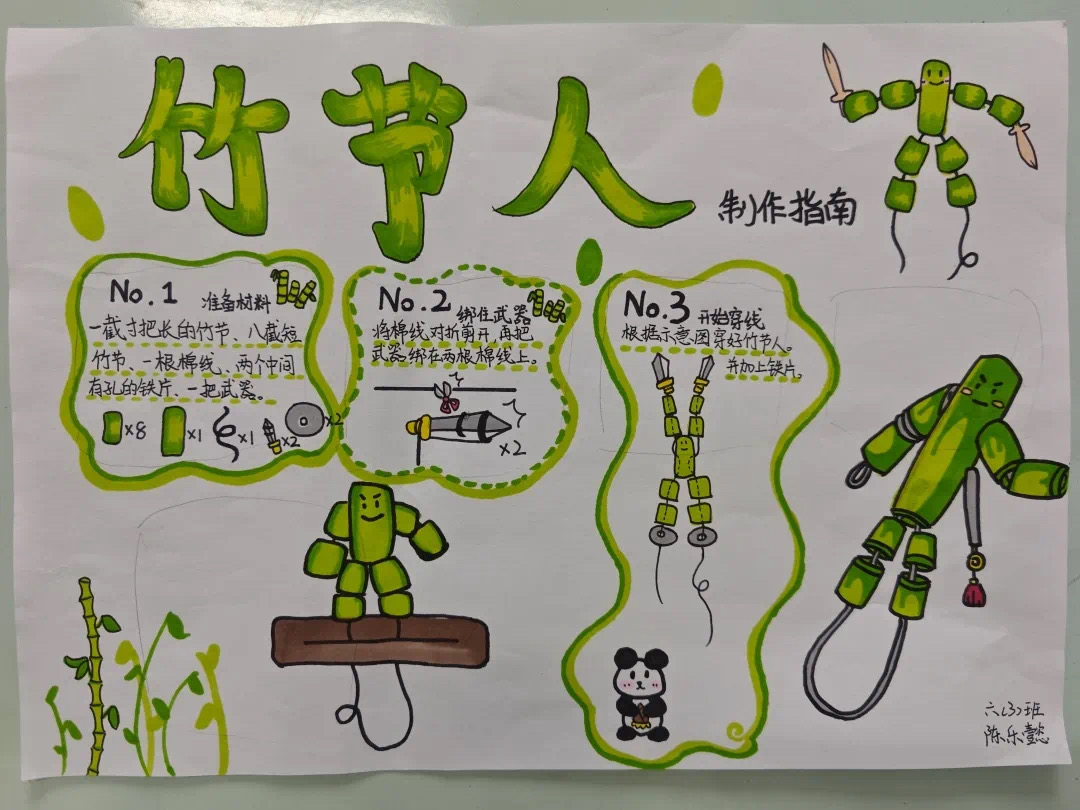 竹节人
制作指南
No.1 准备材料
一截寸把长的竹节、八截短
竹节、一根棉线、两个中间
有孔的铁片、一把武器。
×8 ×1 ×1 ×2 ×2
No.2 绑住武器
将棉线对折剪开,再把
武器绑在两根棉线上。
×2
No.3 开始穿线
根据示意图穿好竹节人。
并加上铁片。
六(3)班
陈乐懿